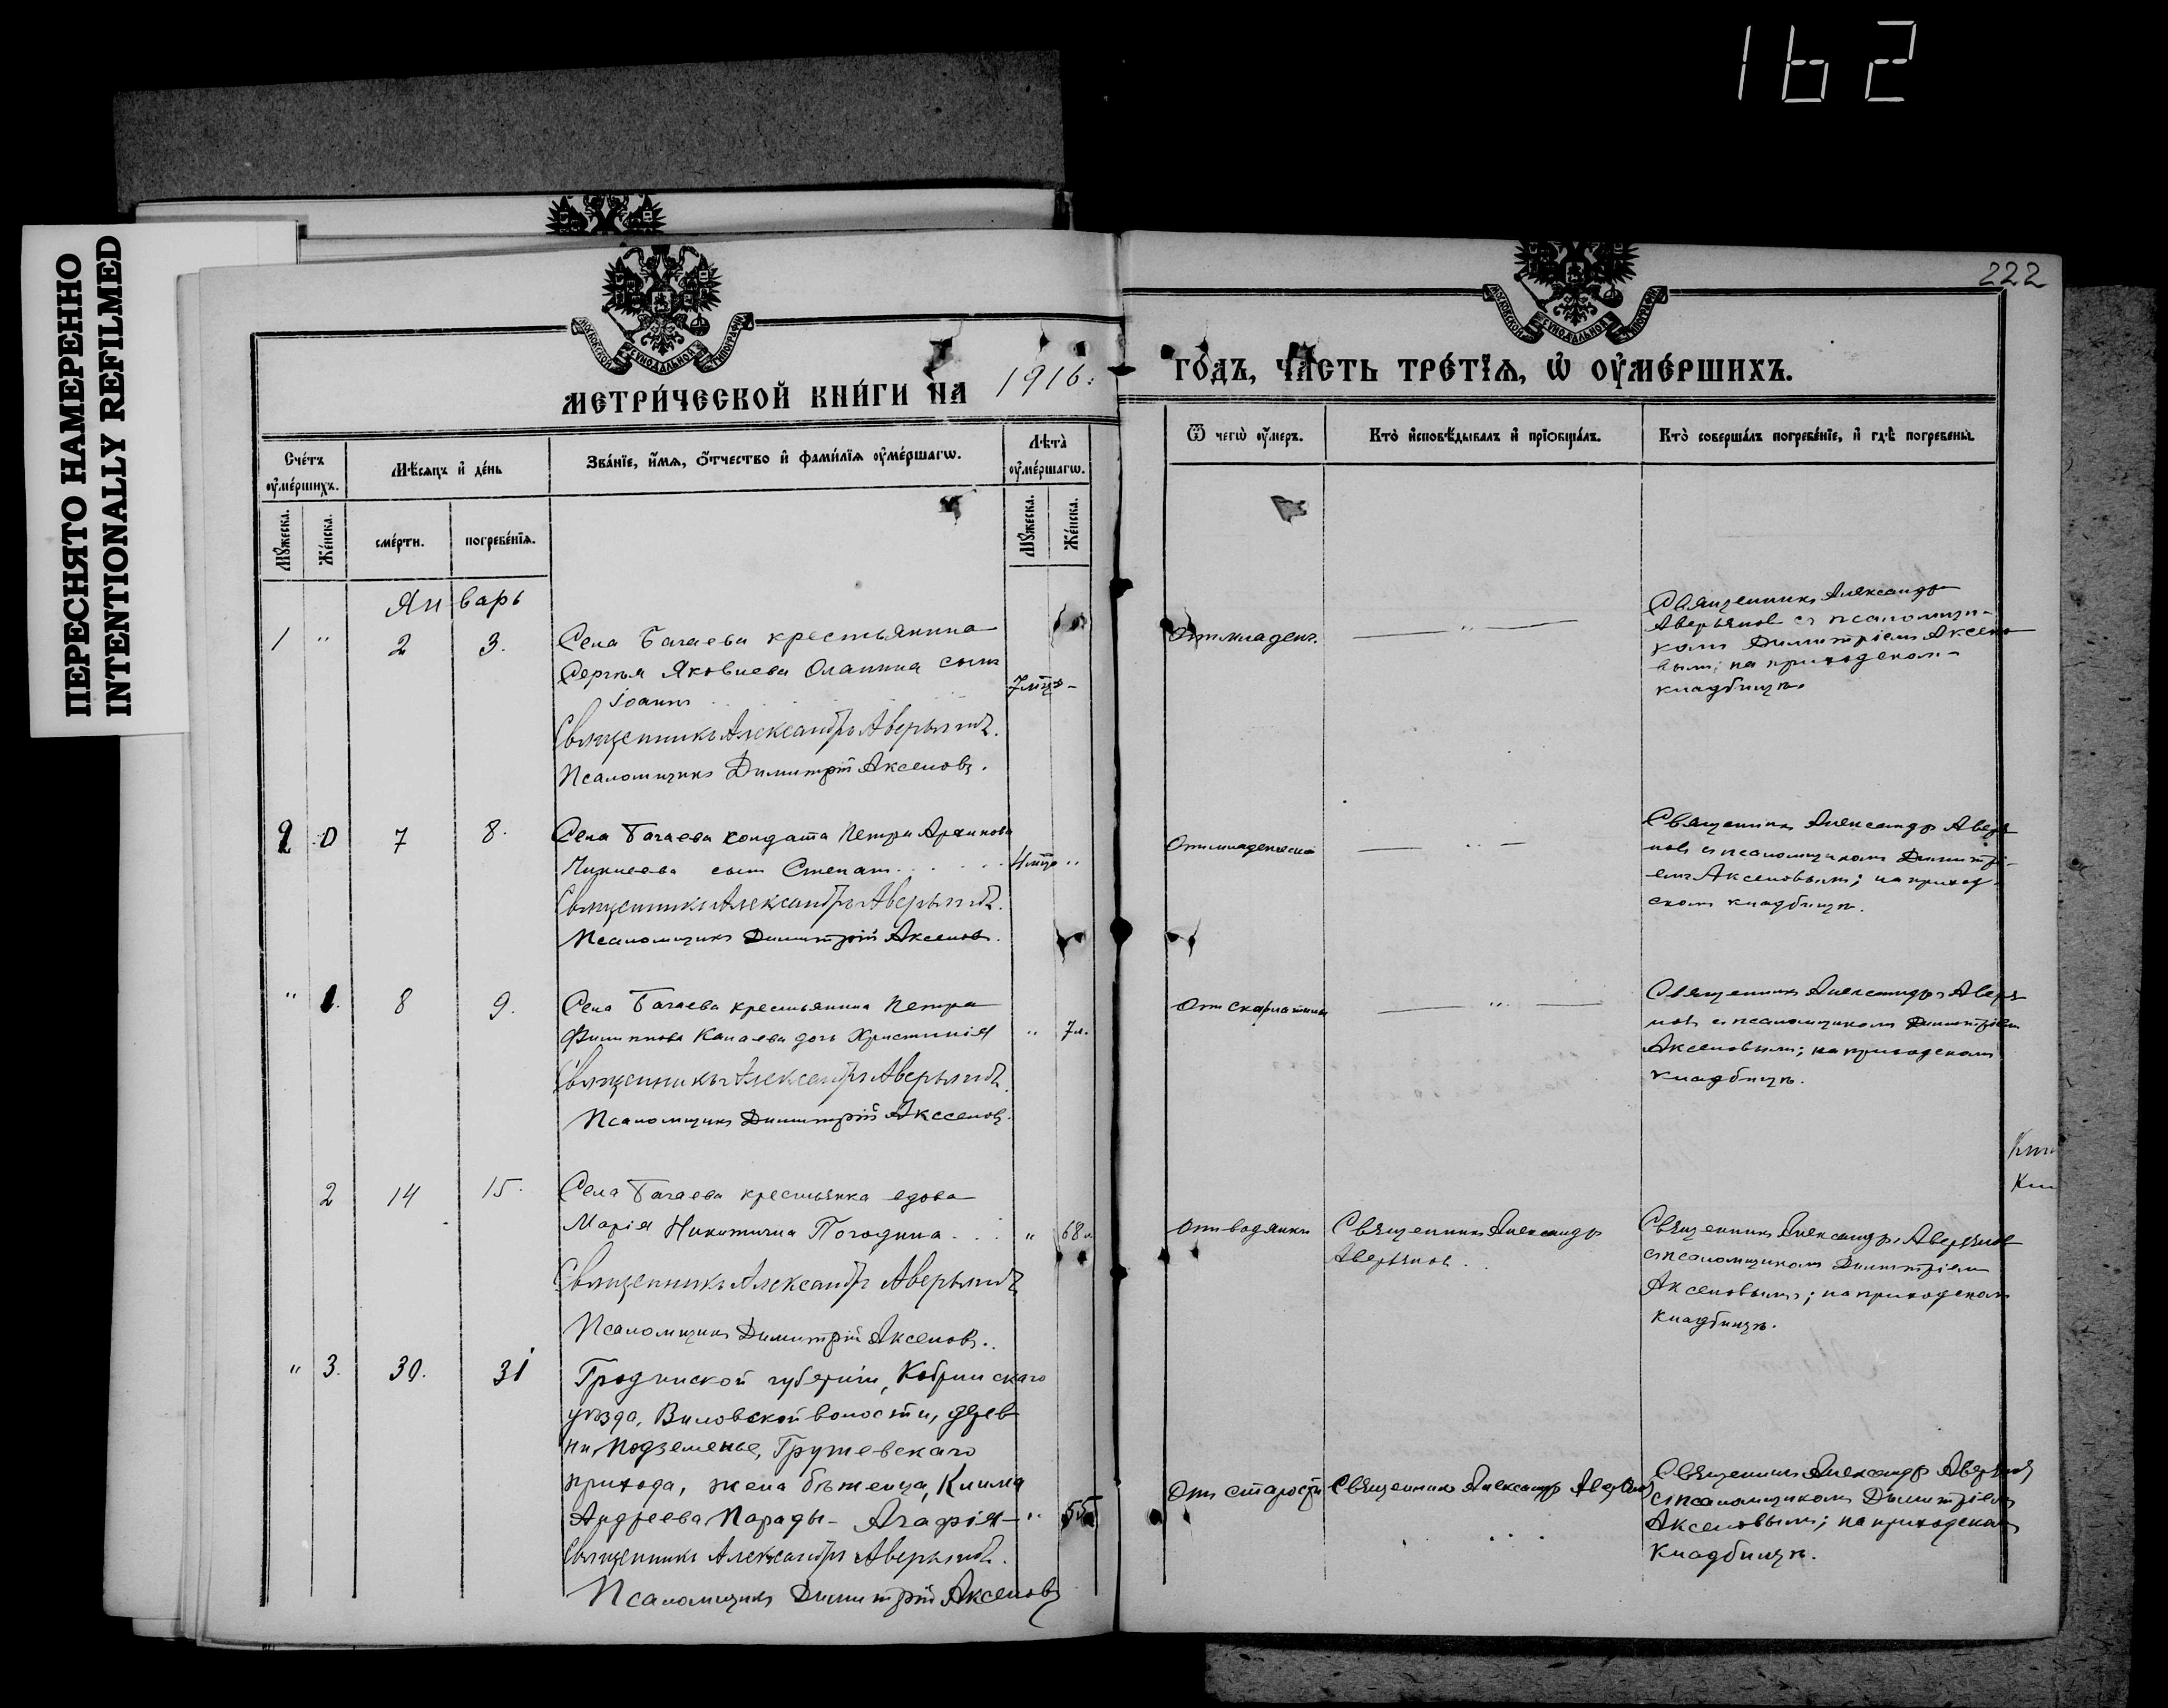 162
ПЕРЕСНЯТО НАМЕРЕННО
INTENTIONALLY REFILMED
222
МОСКОВСКОЙ СѴНОДАЛЬНОЙ ТИПОГРАФІИ
МОСКОВСКОЙ СѴНОДАЛЬНОЙ ТИПОГРАФІИ
МЕТРИ́ЧЕСКОЙ КНИ́ГИ НА 1916: ГО́ДЪ, ЧА́СТЬ ТРЕ́ТЇѦ, Ѡ҆ ОУ҆МЕ́РШИХЪ.
Сче́тъ оу҆ме́ршихъ.
Мѣ́сяцъ и҆ де́нь
Зва́нїе, и҆́мѧ, ѻ҆́тчество и҆ фами́лїѧ оу҆ме́ршагѡ.
Лѣта̀ оу҆ме́ршагѡ.
Ѿ чегѡ̀ оу҆́меръ.
Кто̀ и҆сповѣ́дывалъ и҆ прїѡбща́лъ.
Кто̀ соверша́лъ погребе́нїе, и҆ гдѣ̀ погребены̀.
Мꙋ́жеска.
Же́нска.
сме́рти.
погребе́нїѧ.
Мꙋ́жеска.
Же́нска.
Январь
1 " 2 3. Села Багаева крестьянина
Сергѣя Яковлева Оланина сынъ
Іоаннъ . . . 7 мцъ -
Священникъ Александръ Аверьяновъ.
Псаломщикъ Димитрій Аксеновъ.
От младенч. — " —
Священникъ Александръ
Аверьяновъ съ псаломщи-
комъ Димитріемъ Аксено-
вымъ; на приходскомъ
кладбищѣ.
2 0 7 8. Села Багаева солдата Петра Архипова
сынъ Степанъ . . . "
Священникъ Александръ Аверьяновъ.
Псаломщикъ Димитрій Аксеновъ.
— " —
Священникъ Александръ Аверья-
новъ съ псаломщикомъ Димитрі-
емъ Аксеновымъ; на приход-
скомъ кладбищѣ.
" 1. 8 9. Села Багаева крестьянина Петра
Филиппова Капаева дочь Христинія " 7 л.
Священникъ Александръ Аверьяновъ.
Псаломщикъ Димитрій Аксеновъ.
От скарлатины — " —
Священникъ Александръ Аверья-
новъ съ псаломщикомъ Димитріемъ
Аксеновымъ; на приходскомъ
кладбищѣ.
2 14 15. Села Багаева крестьянка вдова
Марія Никитична Погодина . . . " 68 л.
Священникъ Александръ Аверьяновъ
Псаломщикъ Димитрій Аксеновъ.
От водянки
Священникъ Александръ
Аверьяновъ.
Священникъ Александръ Аверьяновъ
съ псаломщикомъ Димитріемъ
Аксеновымъ; на приходскомъ
кладбищѣ.
" 3. 30. 31 Гродниской губерніи, Кобринскаго
уѣзда, волости, дерев
ни Подземенье, Грушевскаго
прихода, жена бѣженца, Клима
Андреева Парады - Агафія — " 55
Священникъ Александръ Аверьяновъ.
Псаломщикъ Димитрій Аксеновъ
От старости
Священникъ Александръ Аверьяновъ
Священникъ Александръ Аверьяновъ
съ псаломщикомъ Димитріемъ
Аксеновымъ; на приходскомъ
кладбищѣ.